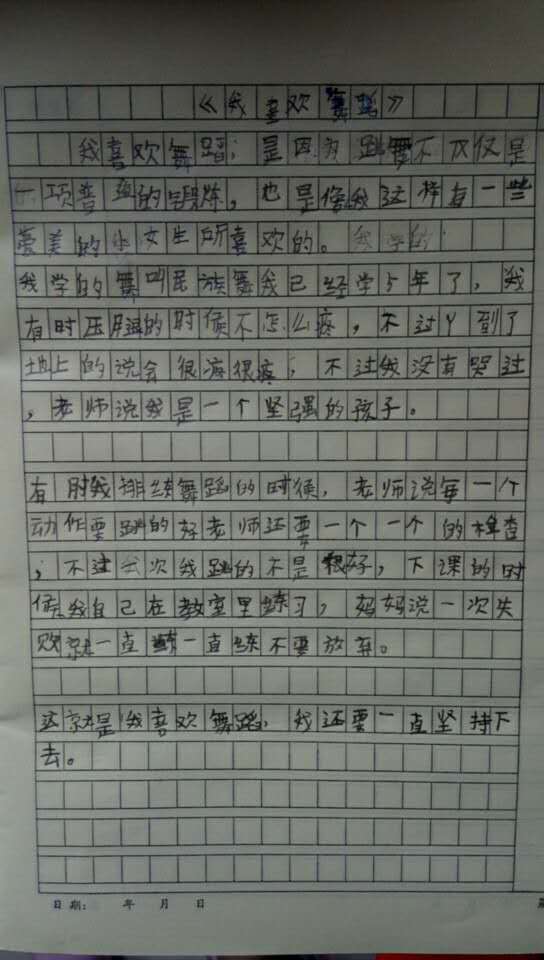 《我喜欢舞蹈》
我喜欢舞蹈；是因为跳舞不仅仅是
一项普通的锻炼，也是像我这样有一些
爱美的小女生所喜欢的。我学的
我学的舞叫民族舞我已经学5年了，我
有时压腿的时候不怎么疼，不过丫到了
地上的说会很疼很疼；不过我没有哭过
，老师说我是一个坚强的孩子。
有时我排练舞蹈的时候，老师说每一个
动作要跳的好老师还要一个一个的检查
；不过我次我跳的不是很好，下课的时
候我自己在教室里练习，妈妈说一次失
败就一直练一直练不要放弃。
这就是我喜欢舞蹈，我还要一直坚持下
去。
日期： 年 月 日